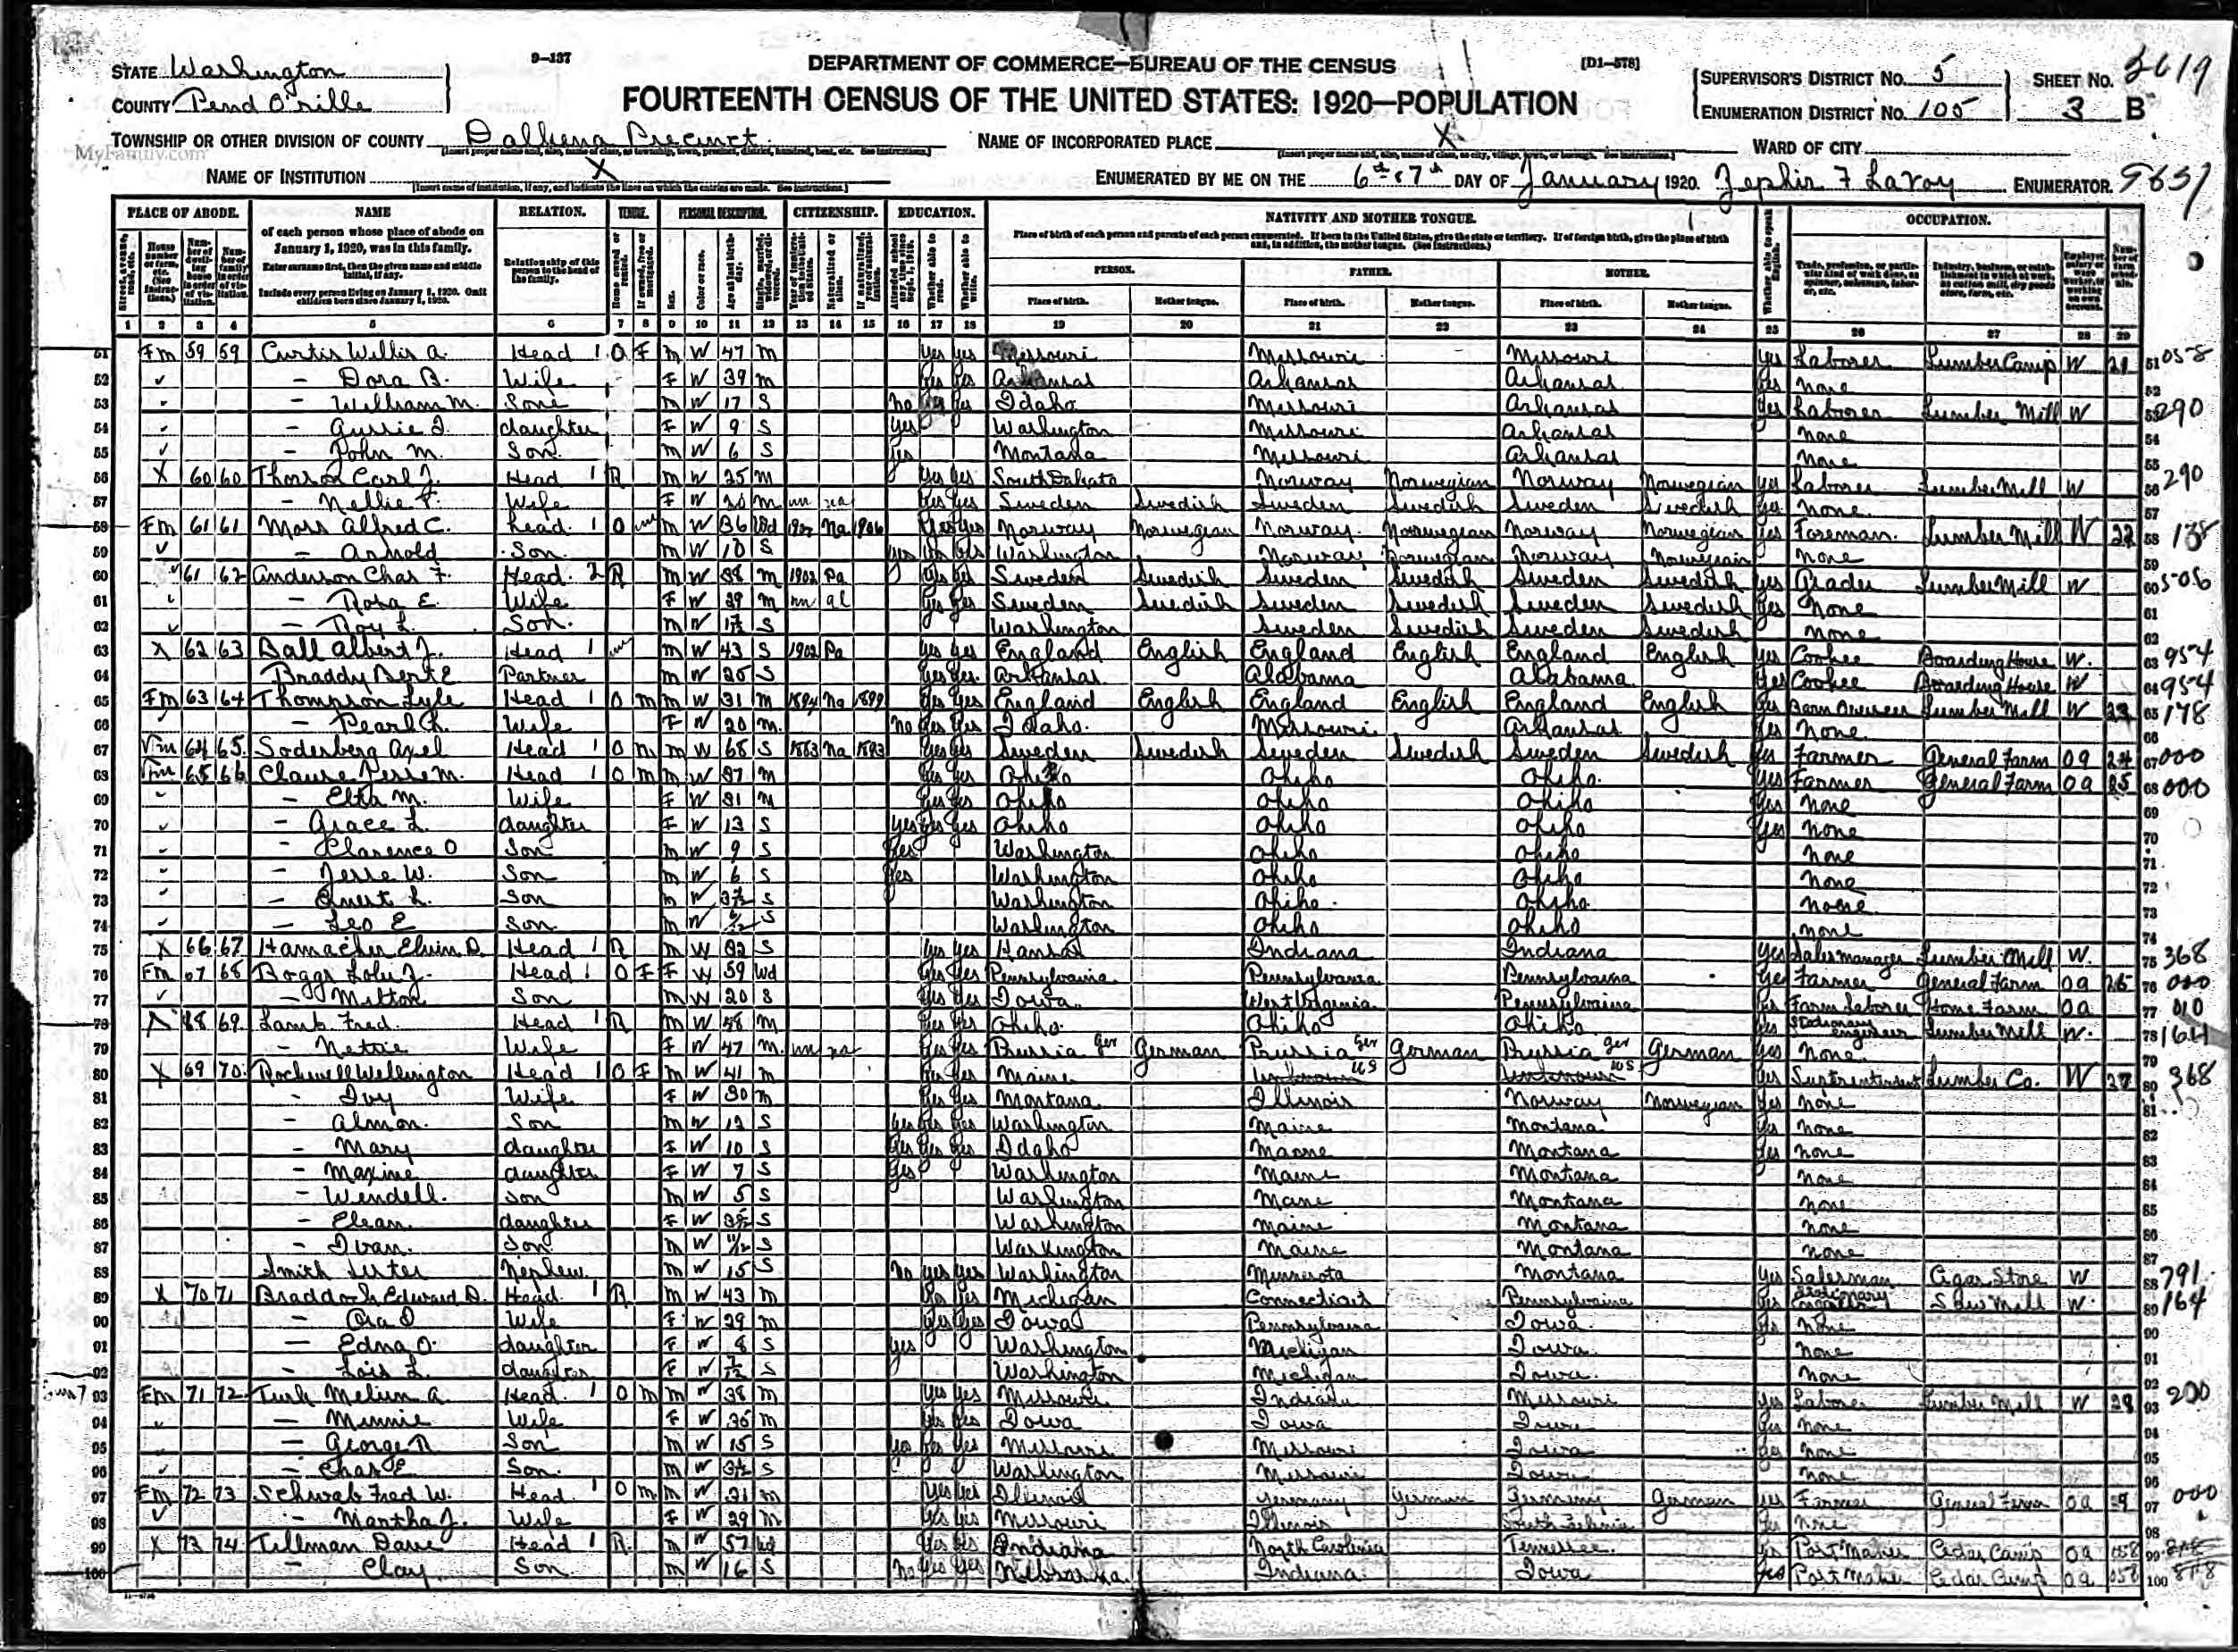 9-137
DEPARTMENT OF COMMERCE—BUREAU OF THE CENSUS
[D1-578]
STATE Washington
COUNTY Pend O'rille
FOURTEENTH CENSUS OF THE UNITED STATES: 1920—POPULATION
SUPERVISOR'S DISTRICT No. 5
ENUMERATION DISTRICT No. 105
SHEET No. 3 B
TOWNSHIP OR OTHER DIVISION OF COUNTY Dalkena Precinct
NAME OF INCORPORATED PLACE X
WARD OF CITY
MyFamily.com
NAME OF INSTITUTION X
ENUMERATED BY ME ON THE 6th & 7th DAY OF January 1920. Zephir F LaVoy ENUMERATOR.
PLACE OF ABODE. NAME RELATION. TENURE. PERSONAL DESCRIPTION. CITIZENSHIP. EDUCATION. NATIVITY AND MOTHER TONGUE. OCCUPATION.
of each person whose place of abode on January 1, 1920, was in this family.
Enter surname first, then the given name and middle initial, if any.
Include every person living on January 1, 1920. Omit children born since January 1, 1920.
Relationship of this person to the head of the family.
PERSON. FATHER. MOTHER.
Place of birth. Mother tongue. Place of birth. Mother tongue. Place of birth. Mother tongue.
1 2 3 4 5 6 7 8 9 10 11 12 13 14 15 16 17 18 19 20 21 22 23 24 25 26 27 28 29
51 Fm 59 59 Curtis Willis A. Head 1 O F M W 47 M Yes Yes Missouri Missouri Missouri Yes Laborer Lumber Camp W 21 51 058
52 – Dora B. Wife F W 39 M Yes Yes Arkansas Arkansas Arkansas Yes None 52
53 – William M. Sone M W 17 S No Yes Idaho Missouri Arkansas Yes Laborer Lumber Mill W 53 290
54 – daughter F W 9 S Yes Washington Missouri Arkansas None 54
55 – John M. Son M W 6 S Yes Montana Missouri Arkansas None 55
56 X 60 60 Thorson Carl J. Head 1 R M W 25 M Yes Yes South Dakota Norway Norwegian Norway Norwegian Yes Laborer Lumber Mill W 56 290
57 – Nellie F. Wife F W 20 M un na Yes Yes Sweden Swedish Sweden Swedish Sweden Swedish Yes None 57
58 Fm 61 61 Alfred C. head 1 O M W 36 Wd na 1906 Yes Yes Norway Norwegian Norway Norwegian Norway Norwegian Yes Foreman Lumber Mill W 22 58 138
59 – Arnold Son M W 10 S Yes Yes Yes Washington Norway Norwegian Norway Norwegian None 59
60 61 62 Anderson Chas F. Head 2 R M W 38 M 1902 Pa Yes Yes Sweden Swedish Sweden Swedish Sweden Swedish Yes Grader Lumber Mill W 60 506
61 – Rosa E. Wife F W 39 M un al Yes Yes Sweden Swedish Sweden Swedish Sweden Swedish Yes None 61
62 – Roy L. Son M W S Washington Sweden Swedish Sweden Swedish None 62
63 X 62 63 Ball Albert J. Head 1 M W 43 S 1902 Pa Yes Yes England English England English England English Yes Cookee Boarding House W. 63 954
64 Braddy Bert E Partner M W 25 S Yes Yes Arkansas Alabama Alabama Yes Cookee Boarding House W 64 954
65 Fm 63 64 Thompson Lyle Head 1 O M M W 31 M 1894 Na 1899 Yes Yes England English England English England English Yes Lumber Mill W 23 65 178
66 – Pearl Wife F W 20 M No Yes Yes Idaho Missouri Arkansas Yes None 66
67 Fm 64 65 Soderberg Axel Head 1 O M M W 65 S 1883 Na 1893 Yes Yes Sweden Swedish Sweden Swedish Sweden Swedish Yes Farmer General Farm OA 24 67 000
68 Fm 65 66 Clause Jesse M. Head 1 O M M W 37 M Yes Yes Ohiho Ohiho Ohiho Yes Farmer General Farm OA 25 68 000
69 – Etta M. Wife F W 31 M Yes Yes Ohiho Ohiho Ohiho Yes None 69
70 – Grace L. daughter F W 13 S Yes Yes Yes Ohiho Ohiho Ohiho Yes None 70
71 – Clarence O Son M W 9 S Yes Washington Ohiho Ohiho None 71
72 – Jesse W. Son M W 6 S Yes Washington Ohiho Ohiho None 72
73 – Ernest L. Son M W S Washington Ohiho Ohiho None 73
74 – Leo E Son M W S Washington Ohiho Ohiho None 74
75 X 66 67 Hamacher Elvin D. Head 1 R M W 32 S Yes Yes Kansas Indiana Indiana Yes Sales Manager Lumber Mill W. 75 368
76 Fm 67 68 Boggs J. Head 1 O F F W 59 Wd Yes Yes Pennsylvania Pennsylvania Pennsylvania Yes Farmer General Farm OA 26 76 000
77 – Milton Son M W 20 S Yes Yes Iowa West Virginia Pennsylvania Yes Farm Laborer Home Farm OA 77 010
78 X 68 69 Lamb Fred Head 1 R M W 58 M Yes Yes Ohiho Ohiho Ohiho Yes Stationary Engineer Lumber Mill W. 78 164
79 – Nettie Wife F W 47 M un na Yes Yes Russia Ger German Russia Ger German Russia Ger German Yes None 79
80 X 69 70 Rockwell Wellington Head 1 O F M W 41 M Yes Yes Maine Unknown US Unknown US Yes Superintendent Lumber Co. W 27 80 368
81 – Ivy Wife F W 30 M Yes Yes Montana Illinois Norway Norwegian Yes None 81
82 – Almon Son M W 12 S Yes Yes Yes Washington Maine Montana Yes None 82
83 – Mary daughter F W 10 S Yes Yes Yes Idaho Maine Montana Yes None 83
84 – Maxine daughter F W 7 S Yes Washington Maine Montana None 84
85 – Wendell Son M W 5 S Washington Maine Montana None 85
86 – Elean daughter F W S Washington Maine Montana None 86
87 – Ivan Son M W 11/12 S Washington Maine Montana None 87
88 Smith Nephew M W 15 S No Yes Yes Washington Minnesota Montana Yes Salesman Cigar Store W 88 791
89 X 70 71 Braddock Edward D. Head 1 R M W 43 M Yes Yes Michigan Connecticut Pennsylvania Yes Stationary Engineer Saw Mill W. 89 164
90 – Ora Wife F W 29 M Yes Yes Iowa Pennsylvania Iowa Yes None 90
91 – Edna O. daughter F W 8 S Yes Washington Michigan Iowa None 91
92 – Lois L. daughter F W S Washington Michigan Iowa None 92
93 Fm 71 72 Turk Melvin A. Head 1 O M M W 38 M Yes Yes Missouri Indiana Missouri Yes Laborer Lumber Mill W 28 93 200
94 – Minnie Wife F W 36 M Yes Yes Iowa Iowa Iowa Yes None 94
95 – George R Son M W 15 S Yes Yes Yes Missouri Missouri Iowa Yes None 95
96 – Chas E Son M W S Washington Missouri Iowa None 96
97 Fm 72 73 Schwab Fred W. Head 1 O M M W 31 M Yes Yes Illinois Germany German Germany German Yes Farmer General Farm OA 29 97 000
98 – Martha J. Wife F W 29 M Yes Yes Missouri Illinois Yes None 98
99 X 73 74 Tillman Dave Head 1 R M W 57 Wd Yes Yes Indiana North Carolina Tennessee Yes Post Maker Cedar Camp OA 058 99
100 – Clay Son M W 16 S No Yes Yes Nebraska Indiana Iowa Yes Post Maker Cedar Camp OA 058 100